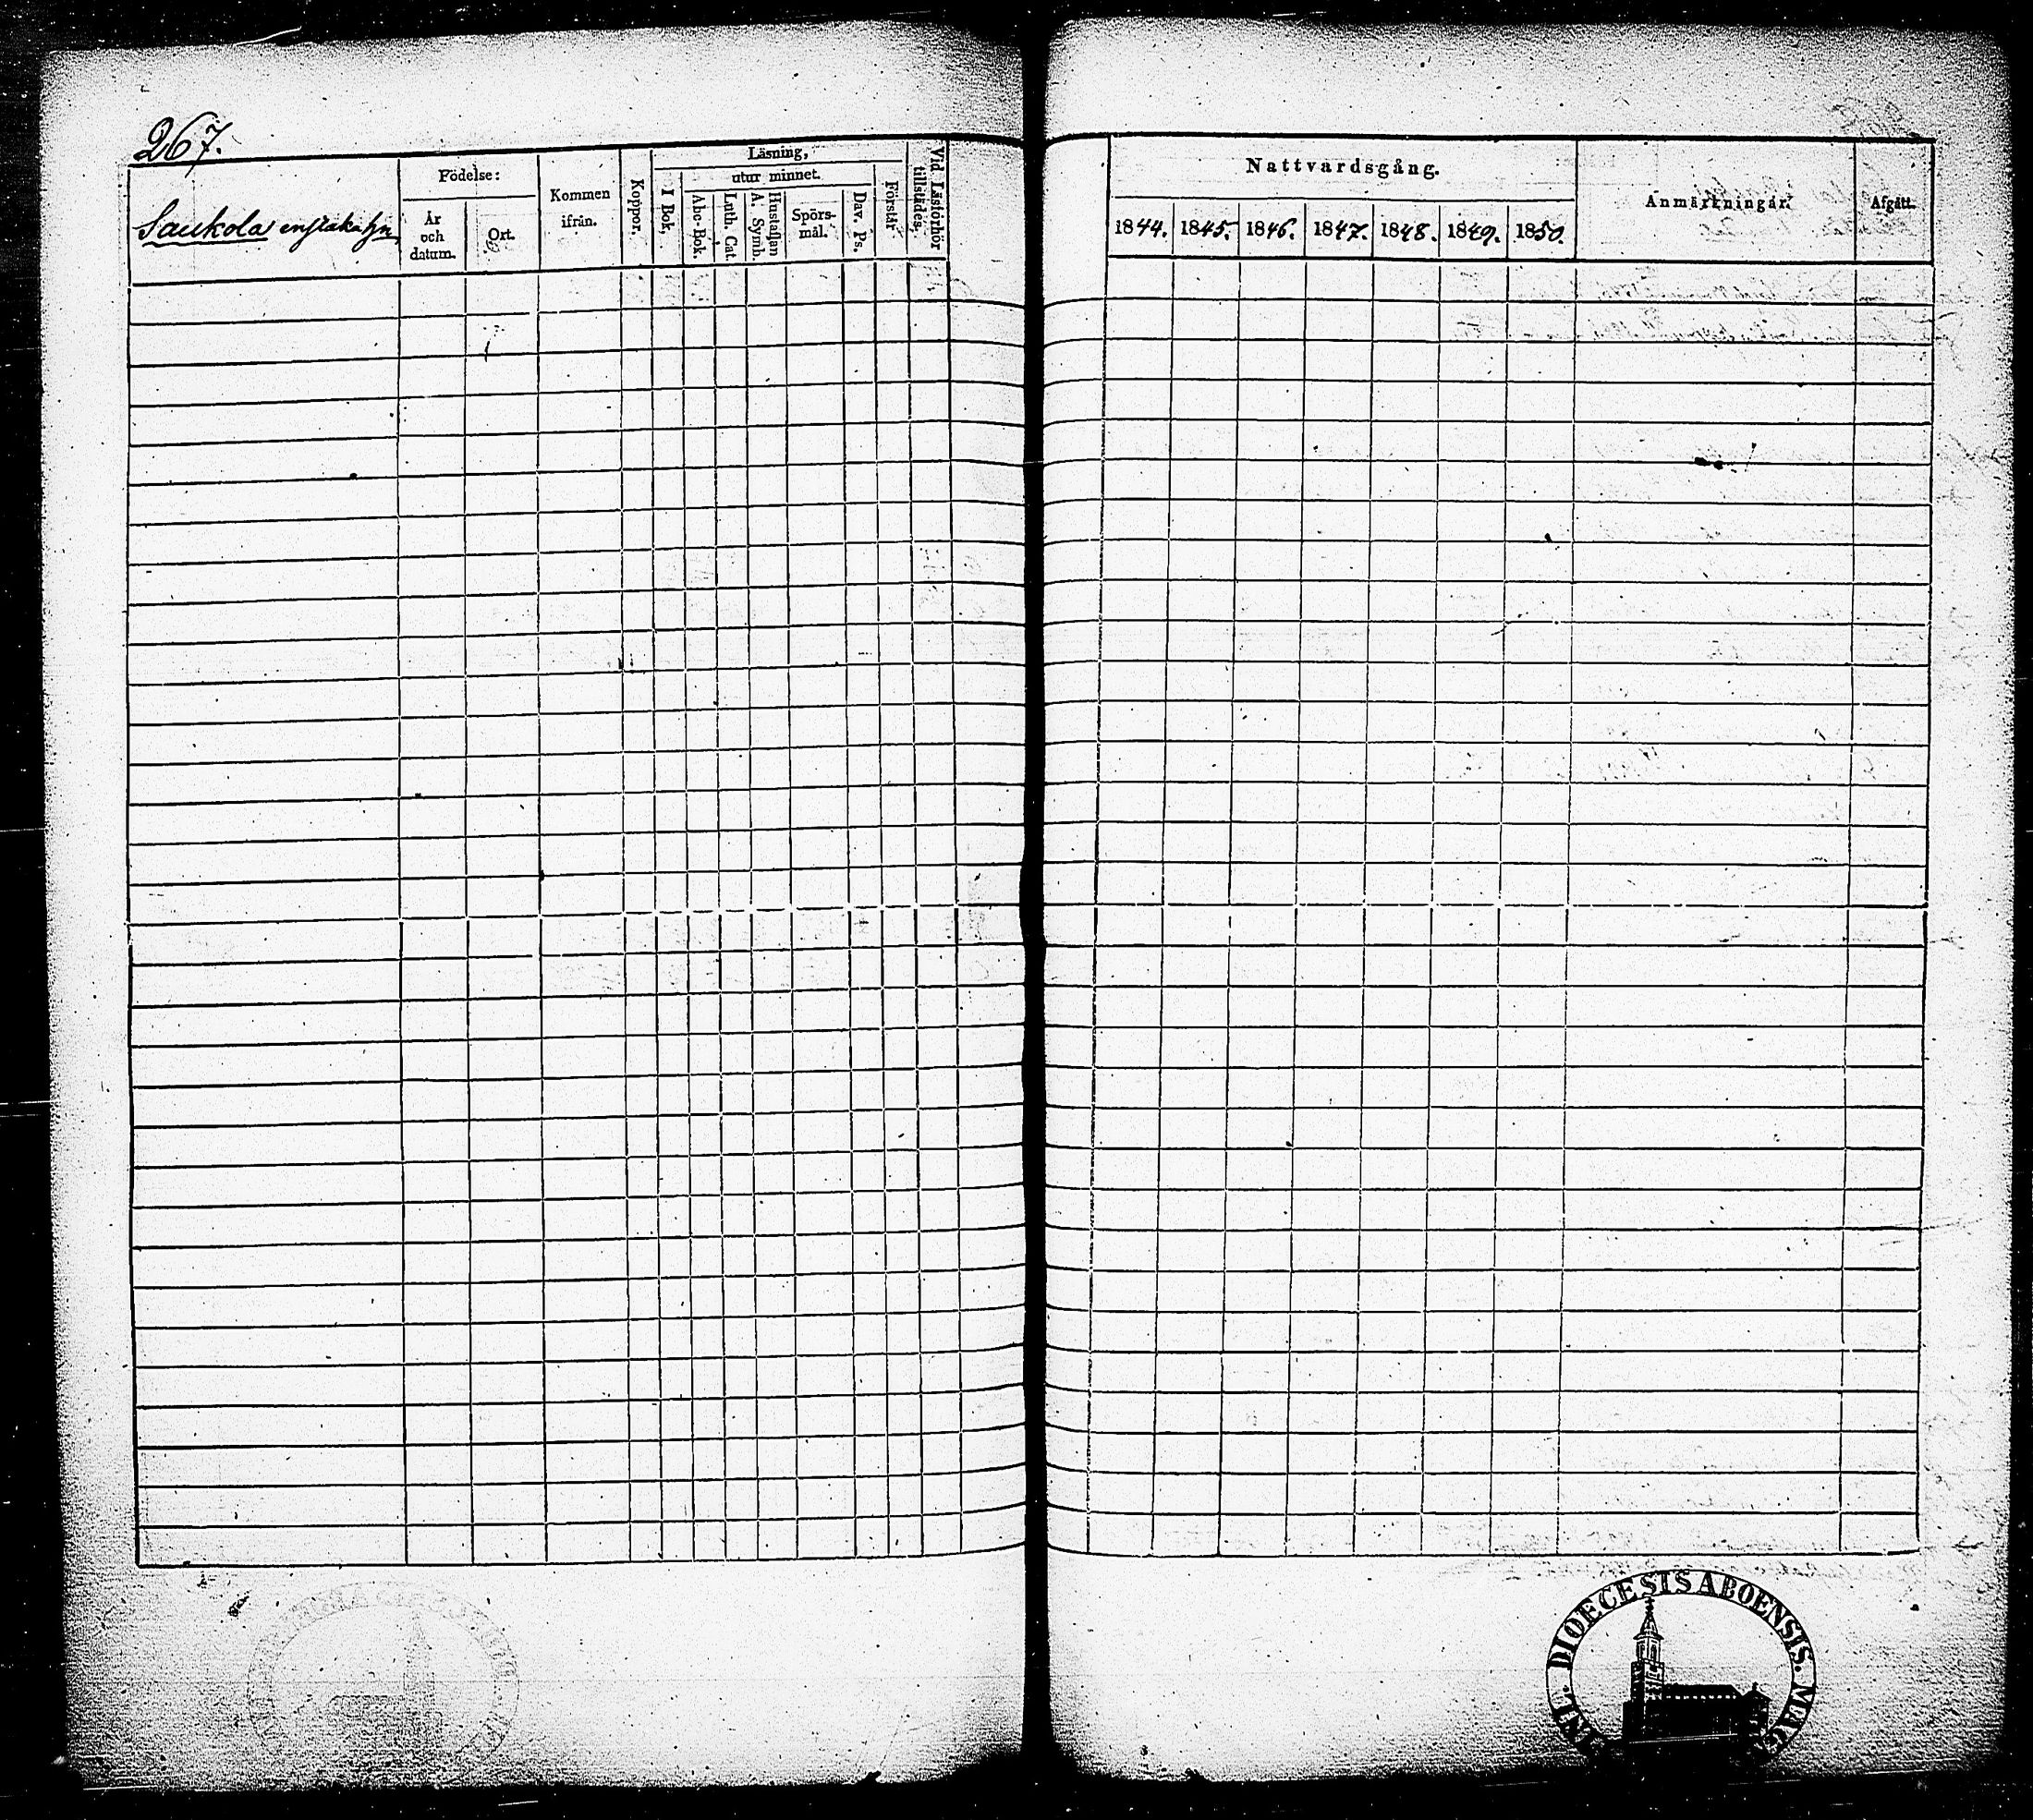 267.
Saukola enstaka hn
Födelse:
År och datum.
Ort.
Kommen ifrån.
Koppor.
Läsning,
I Bok.
utur minnet.
Abc-Bok.
Luth. Cat.
Hustaflan A. Symb.
Spörs-
mål.
Dav. Ps.
Förstår
Vid Läsförhör tillstädes.
Nattvardsgång.
1844. 1845. 1846. 1847. 1848. 1849. 1850.
Anmärkningar.
Afgått.
DIOECESIS ABOENSIS. MAG